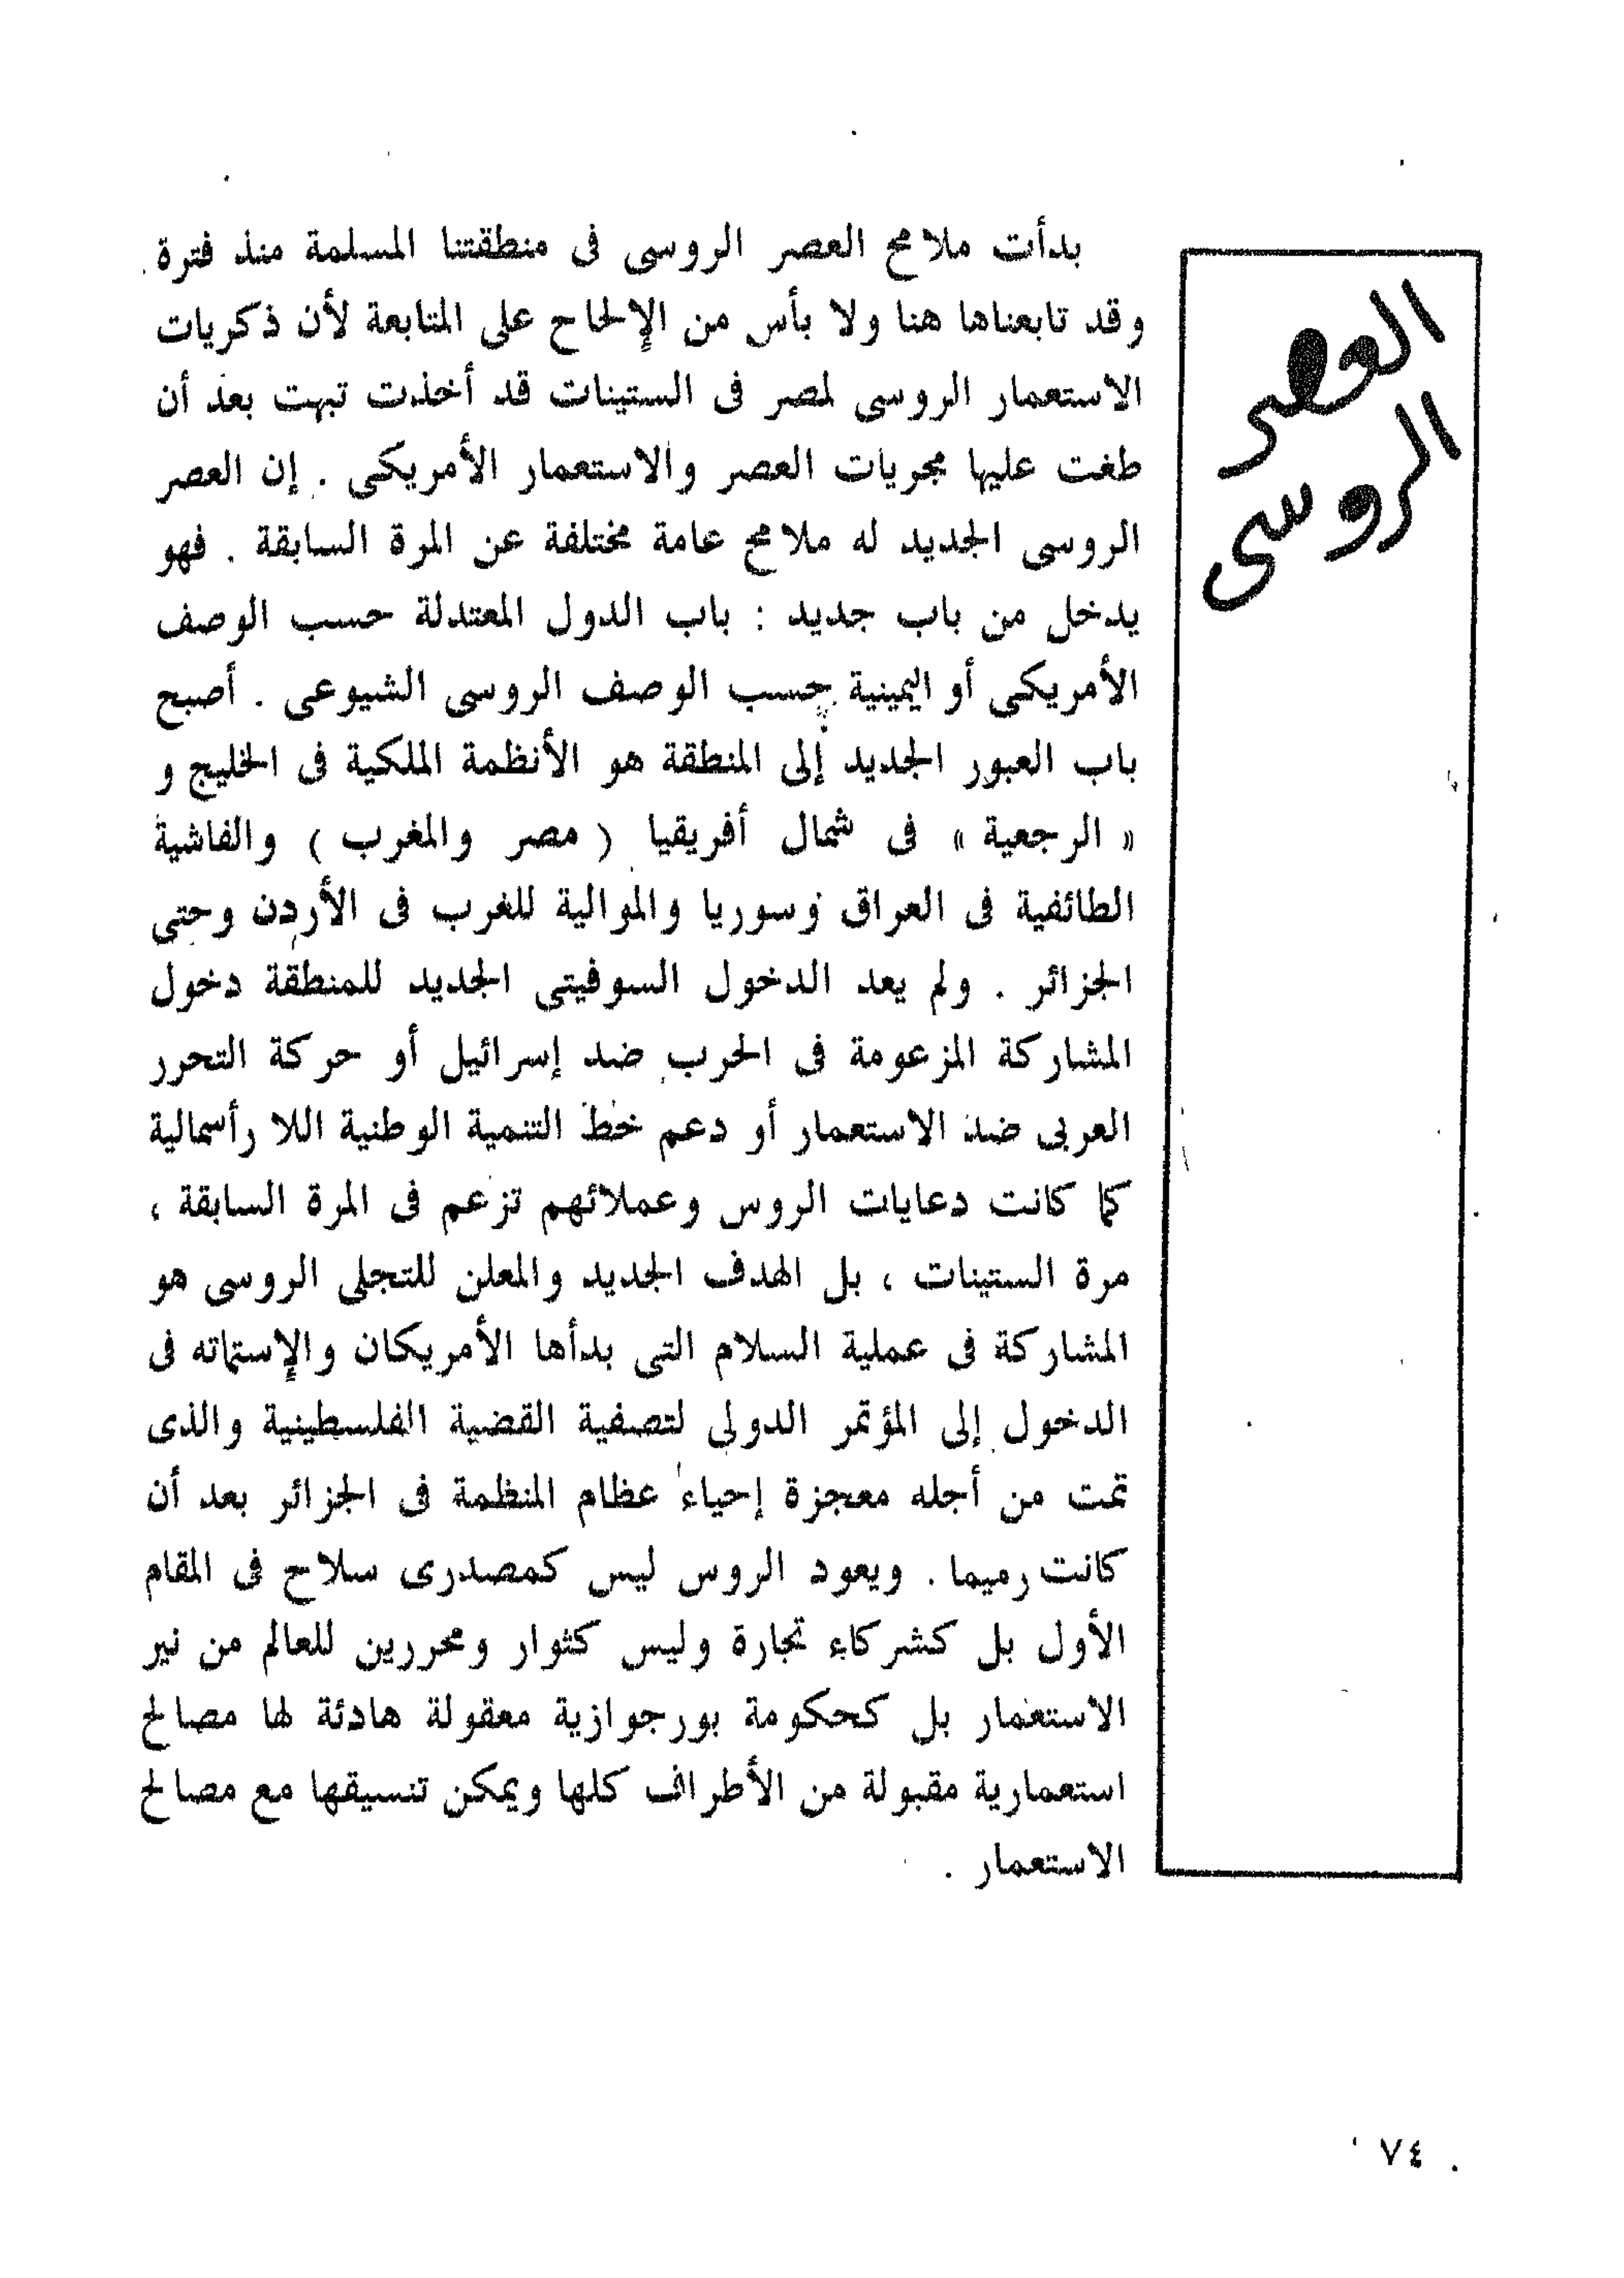 العصر
الروسى
بدأت ملامح العصر الروسى فى منطقتنا المسلمة منذ فترة
وقد تابعناها هنا ولا بأس من الإلحاح على المتابعة لأن ذكريات
الاستعمار الروسى لمصر فى الستينات قد أخذت تبهت بعد أن
طغت عليها مجريات العصر والاستعمار الأمريكى . إن العصر
الروسى الجديد له ملامح عامة مختلفة عن المرة السابقة . فهو
يدخل من باب جديد : باب الدول المعتدلة حسب الوصف
الأمريكى أو اليمينية حسب الوصف الروسى الشيوعى . أصبح
باب العبور الجديد إلى المنطقة هو الأنظمة الملكية فى الخليج و
« الرجعية » فى شمال أفريقيا ( مصر والمغرب ) والفاشية
الطائفية فى العراق وسوريا والموالية للغرب فى الأردن وحتى
الجزائر . ولم يعد الدخول السوفيتى الجديد للمنطقة دخول
المشاركة المزعومة فى الحرب ضد إسرائيل أو حركة التحرر
العربى ضد الاستعمار أو دعم خط التنمية الوطنية اللا رأسمالية
كما كانت دعايات الروس وعملائهم تزعم فى المرة السابقة ،
مرة الستينات ، بل الهدف الجديد والمعلن للتجلى الروسى هو
المشاركة فى عملية السلام التى بدأها الأمريكان والإستماته فى
الدخول إلى المؤتمر الدولى لتصفية القضية الفلسطينية والذى
تمت من أجله معجزة إحياء عظام المنظمة فى الجزائر بعد أن
كانت رميما . ويعود الروس ليس كمصدرى سلاح فى المقام
الأول بل كشركاء تجارة وليس كثوار ومحررين للعالم من نير
الاستعمار بل كحكومة بورجوازية معقولة هادئة لها مصالح
استعمارية مقبولة من الأطراف كلها ويمكن تنسيقها مع مصالح
الاستعمار .
٧٤